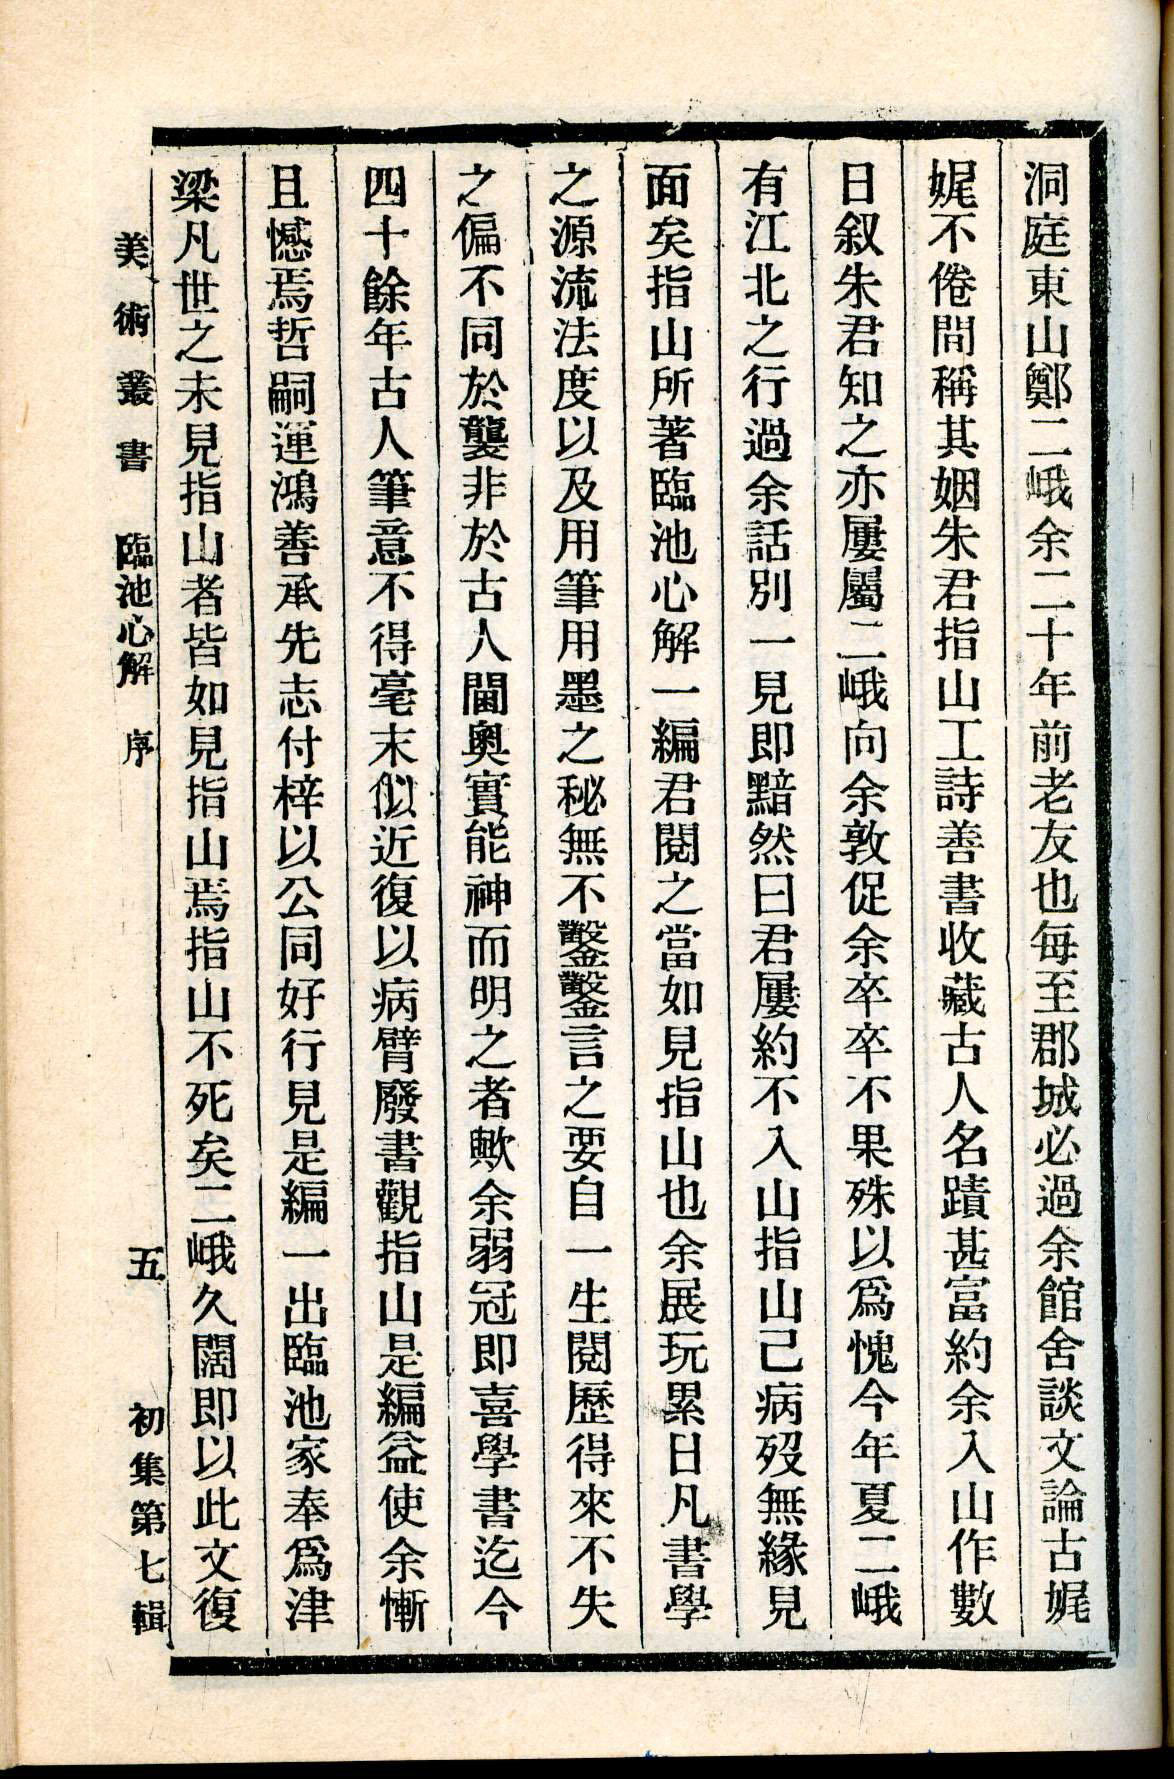 洞庭東山鄭二峨余二十年前老友也每至郡城必過余館舍談文論古娓
娓不倦間稱其姻朱君指山工詩善書收藏古人名蹟甚富約余入山作數
日叙朱君知之亦屢屬二峨向余敦促余卒卒不果殊以爲愧今年夏二峨
有江北之行過余話別一見即黯然曰君屢約不入山指山已病歿無緣見
面矣指山所著臨池心解一編君閱之當如見指山也余展玩累日凡書學
之源流法度以及用筆用墨之秘無不鑿鑿言之要自一生閱歷得來不失
之偏不同於襲非於古人閫奧實能神而明之者歟余弱冠即喜學書迄今
四十餘年古人筆意不得毫末似近復以病臂廢書觀指山是編益使余慚
且憾焉哲嗣運鴻善承先志付梓以公同好行見是編一出臨池家奉爲津
梁凡世之未見指山者皆如見指山焉指山不死矣二峨久闊即以此文復
美術叢書 臨池心解 序 五 初集第七輯